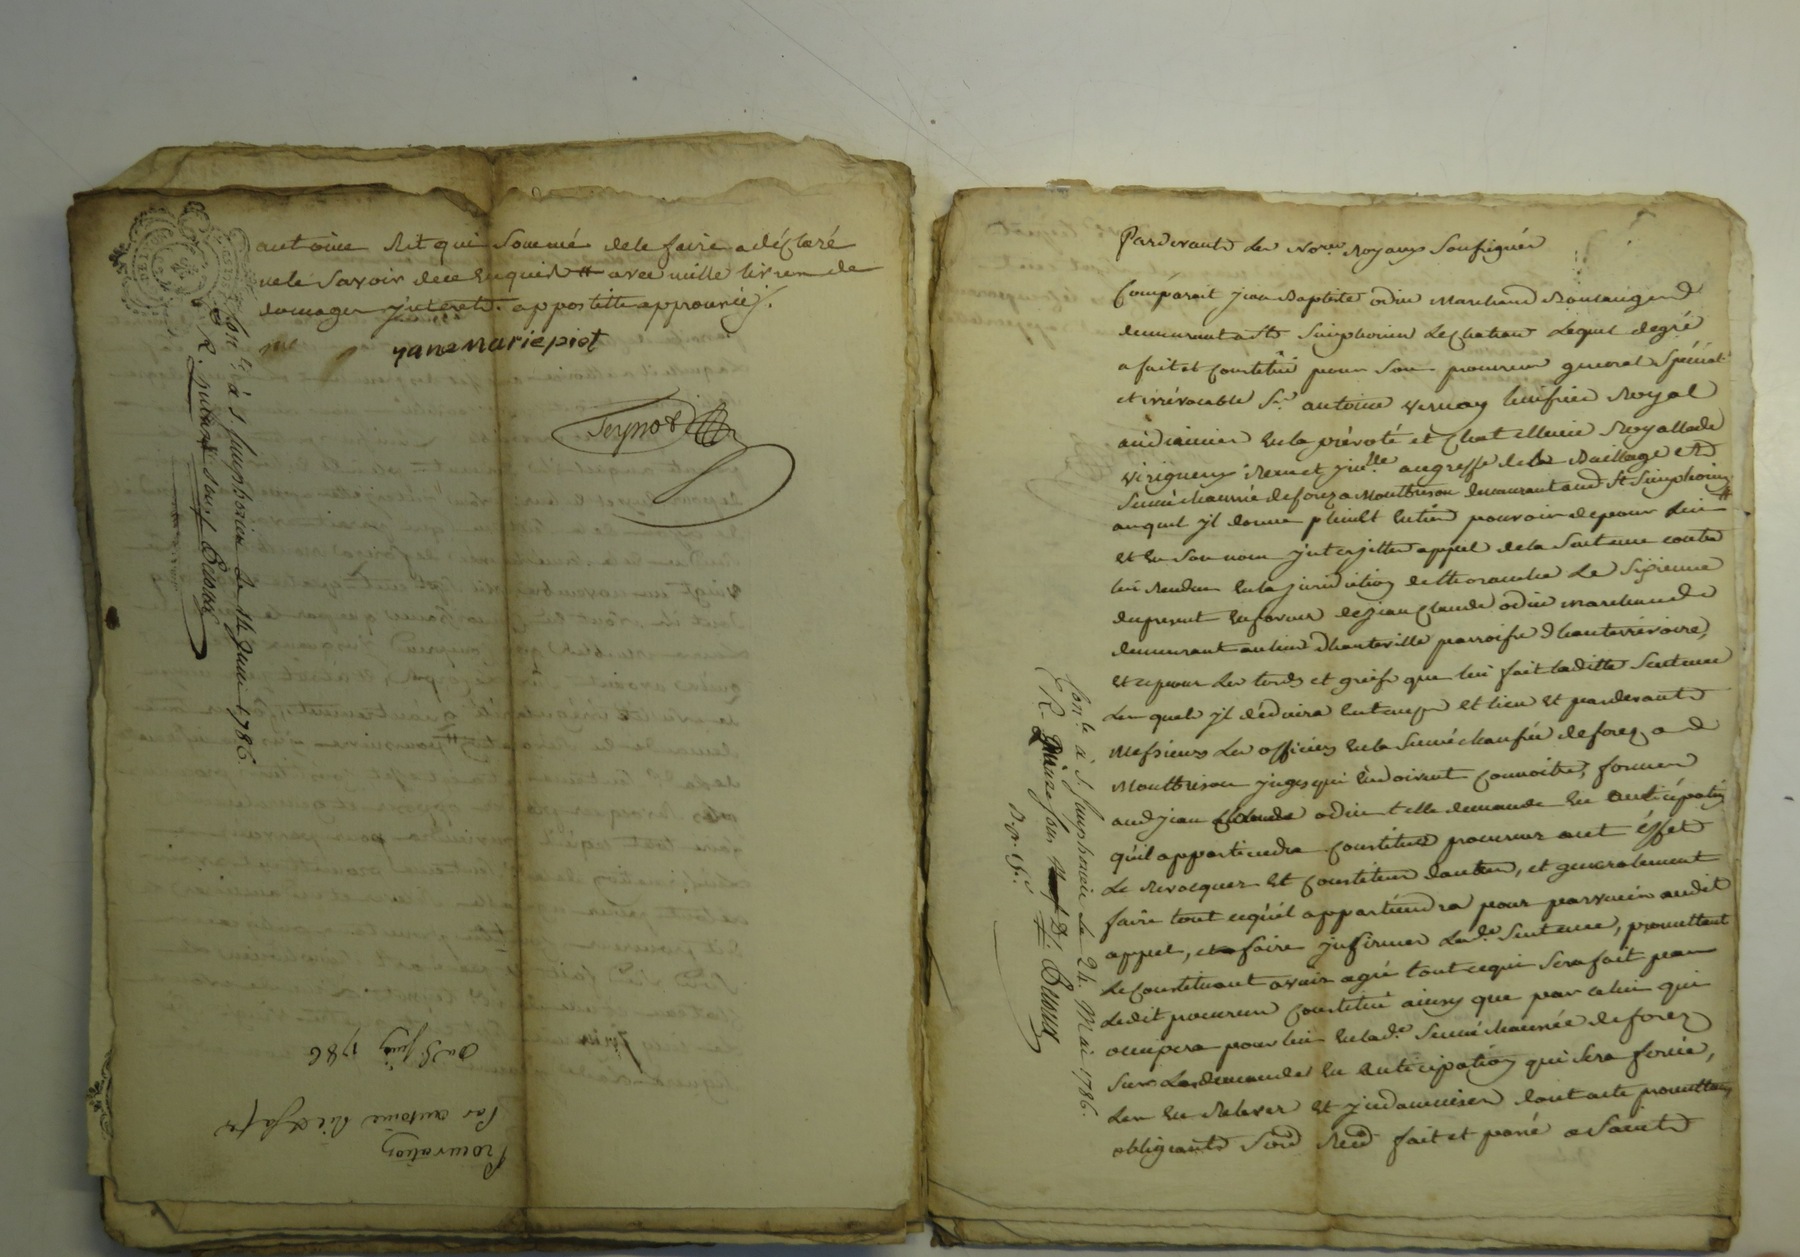 antoine Rit qui sommé de le faire a déclaré
ne le savoir de ce enquis # avec mille livres de
domages interets. apostille approuvée.
janemariepiot
Teynot
Con.lé à S. Simphorien le 14 Juin 1786
R. quinze sous
Procuration
Par antoine
Du 8 juin 1786
Pardevant les No.res Royaux soussignés
Comparait jean Baptiste odin marchand Boulanger
demeurant a St Simphorien le Chateau lequel de gré
a fait et constitué pour son procureur general spécial
et irrévocable Sr. antoine vernay huissier Royal
audiancier en la prévoté et Chatellenie Royalle de
Virigneux au greffe de la Baillage et
Senechaussée de forez a Montbrison demeurant aud St Simphorien
auquel yl donne plein et entier pouvoir de pour lui
et en son nom ynterjetter appel de la Sentence contre
lui Rendue en la juridiction de le sixieme
du present en faveur de jean Claude odin marchand
demeurant au lieu d'hauteville parroisse d'hauterivoire,
et ce pour les tords et griefs que lui fait laditte Sentence
les quels yl déduira en temps et lieu et pardevant
Messieurs les officiers en la Senéchaussée de forez a
Montbrison juges qui en doivent connoitre, former
aud jean Claude odin telle demande en anticipation
qu'il appartiendra constituer procureur aut effet
le Revocquer et constituer d'autres, et generalement
faire tout ce qu'il appartiendra pour parvenir audit
appel, et faire jnfirmer lad.e Sentence, promettant
le constituant avoir agré tout ce qui sera fait par
ledit procureur constitué ainsy que par celui qui
occupera pour lui en lad.e Senéchaussée de forez
sur les demandes en anticipation qui sera formée,
les en Relever et yndamniser dont acte promettant
obligeant Soud Rend fait et passé a Saint
Con.lé à S. Simphorien le 24 Mai 1786.
R. quinze sous